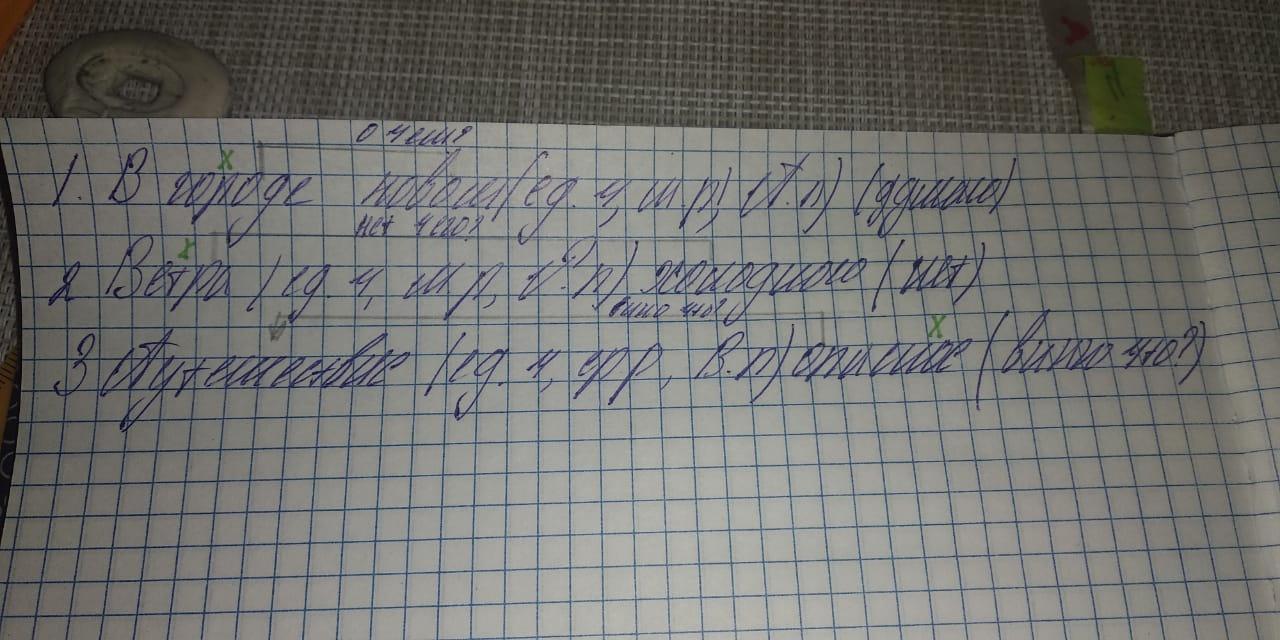 о чём?
1. В городе новом (ед. ч, м.р, П.п) (думаю)
нет чего?
2 Ветра (ед. ч, м р, Р. п) холодного (нет)
вижу что?
3 Путешествие (ед. ч, ср р, В.п) опасное (вижу что?)